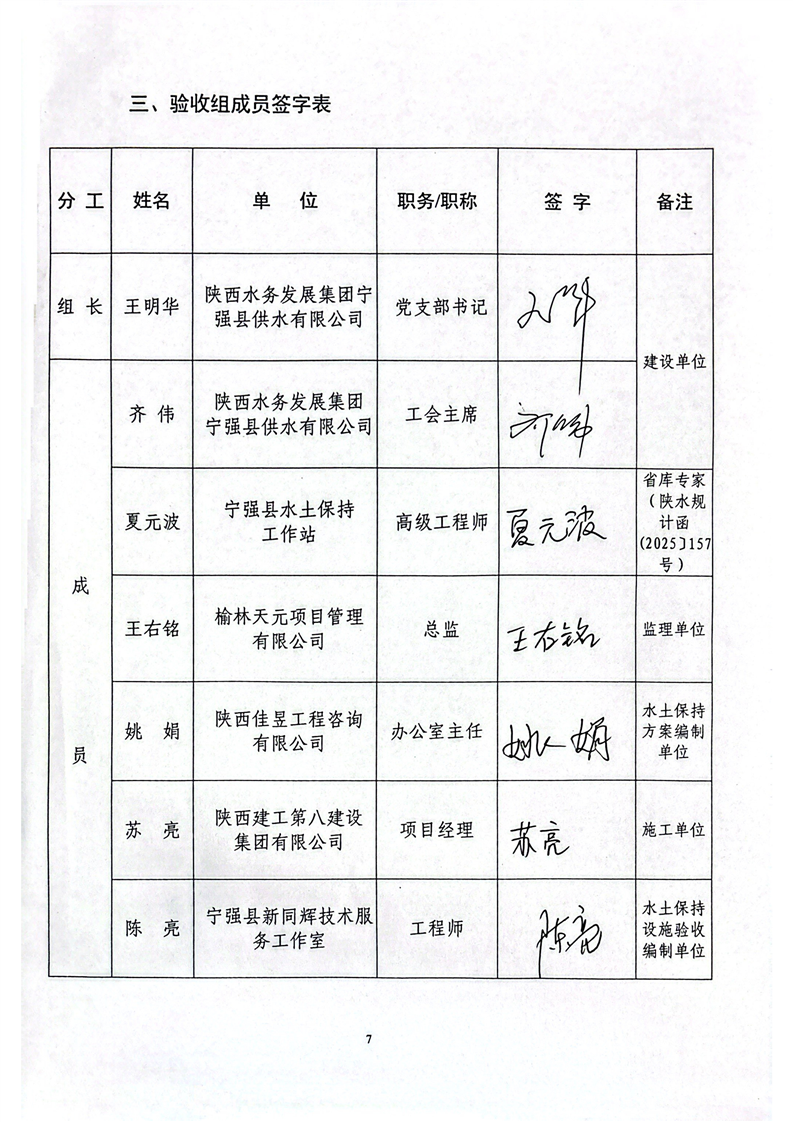 三、验收组成员签字表
分 工 姓名 单 位 职务/职称 签 字 备注
组 长 王明华 陕西水务发展集团宁
强县供水有限公司 党支部书记
建设单位
成
员
齐 伟 陕西水务发展集团
宁强县供水有限公司 工会主席 齐伟
夏元波 宁强县水土保持
工作站 高级工程师 夏元波
省库专家
（陕水规
计函
(2025]157
号）
王右铭 榆林天元项目管理
有限公司 总监 王右铭 监理单位
姚 娟 陕西佳昱工程咨询
有限公司 办公室主任 姚娟
水土保持
方案编制
单位
苏 亮 陕西建工第八建设
集团有限公司 项目经理 苏亮 施工单位
陈 亮 宁强县新同辉技术服
务工作室 工程师 陈亮
水土保持
设施验收
编制单位
7